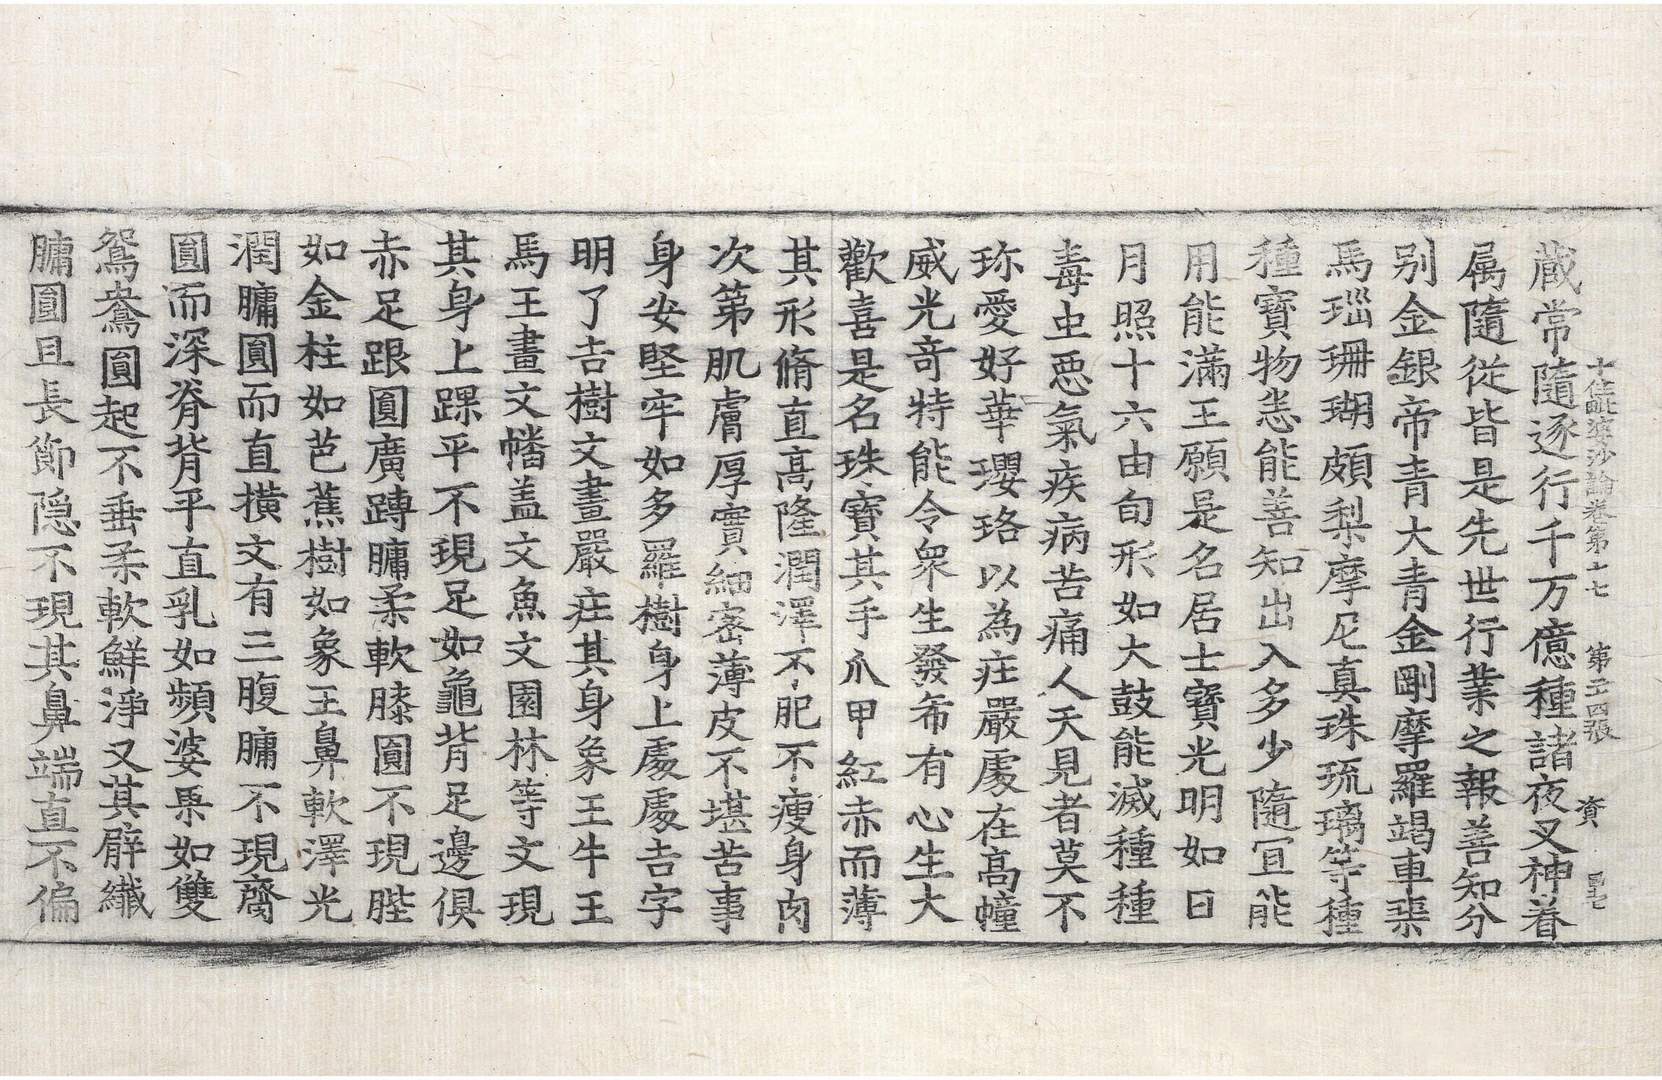 十住毗婆沙論卷第十七　第五四張　資
藏常隨逐行千万億種諸夜叉神眷
属隨從皆是先世行業之報善知分
别金銀帝青大青金剛摩羅竭車渠
馬瑙珊瑚頗梨摩尼真珠琉璃等種
種寶物悉能善知出入多少隨冝能
用能滿王願是名居士寶光明如日
月照十六由旬形如大鼓能滅種種
毒虫惡氣疾病苦痛人天見者莫不
珎愛好華瓔珞以為庄嚴處在高幢
威光竒特能令衆生發希有心生大
歡喜是名珠寶其手爪甲紅赤而薄
其形脩直高隆潤澤不肥不瘦身肉
次第肌膚厚實細密薄皮不堪苦事
身安堅牢如多羅樹身上處處吉字
明了吉樹文畫嚴庄其身象王牛王
馬王畫文幡盖文魚文園林等文現
其身上踝平不現足如龜背足邊俱
赤足跟圓廣𨄔𦟛柔軟膝圓不現髀
如金柱如芭蕉樹如象王鼻軟澤光
潤𦟛圓而直橫文有三腹𦟛不現齎
圓而深脊背平直乳如頻婆果如雙
鴛鴦圓起不垂柔軟鮮淨又其臂纖
𦟛圓且長節隠不現其鼻端直不偏